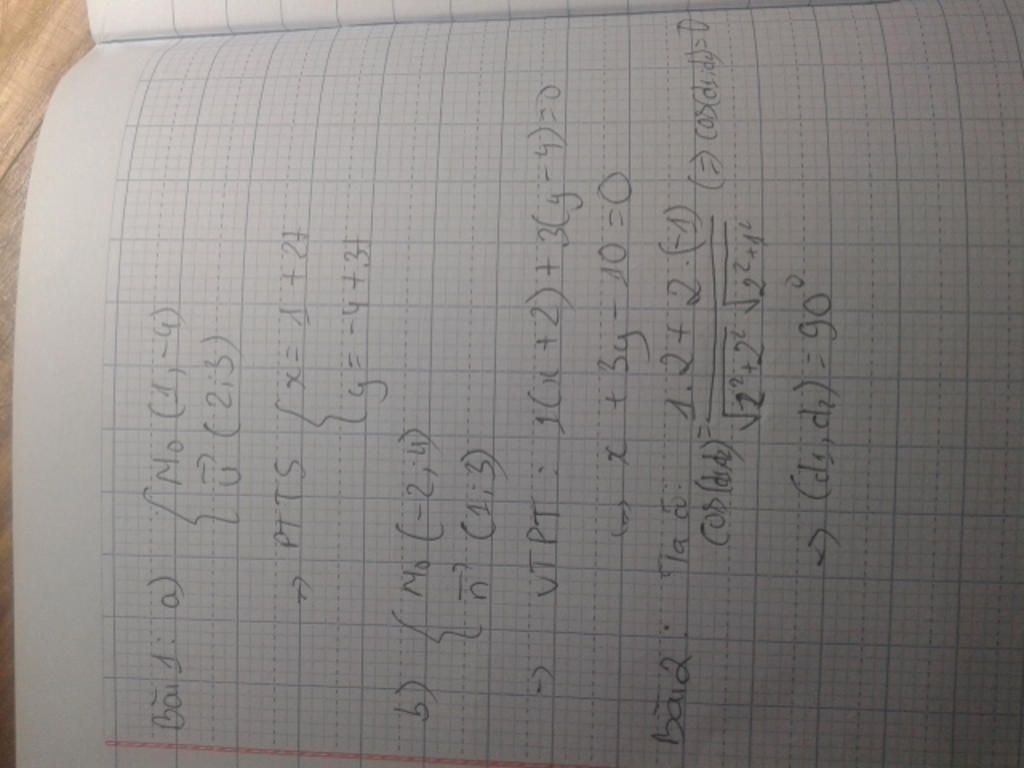 Bài 1: a) { M₀ (1,-4)
u⃗ (2;3)
=> PTTS { x = 1 + 2t
y = -4 + 3t
b) { M₀ (-2;4)
n⃗ (1;3)
=> VTPT: 1(x+2) + 3(y-4)=0
<=> x + 3y - 10 = 0
Bài 2: Ta có:
cos(d1,d2) = 1.2 + 2.(-1) / √2²+2² √2²+1² (=> cos(d1,d2)=0
=> (d1,d2) = 90⁰